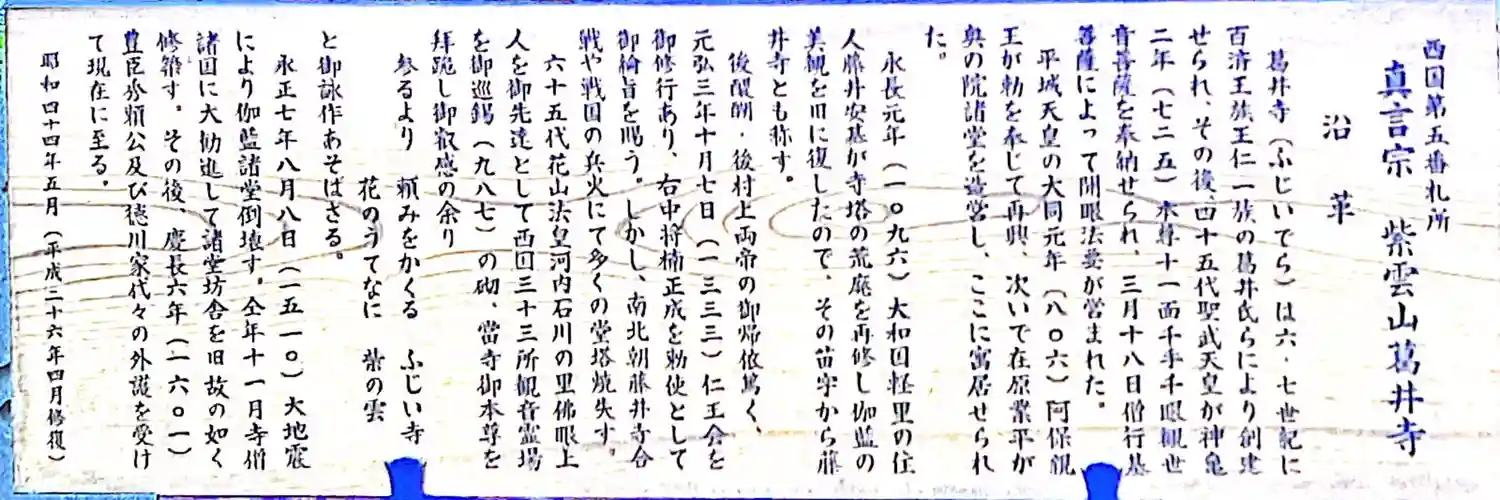 西国第五番札所
真言宗 紫雲山葛井寺
沿革
葛井寺（ふじいでら）は六・七世紀に
百済王族王仁一族の葛井氏らにより創建
せられ、その後、四十五代聖武天皇が神亀
二年（七二五）本尊十一面千手千眼観世
音菩薩を奉納せられ、三月十八日僧行基
菩薩によって開眼法要が営まれた。
平城天皇の大同元年（八〇六）阿保親
王が勅を奉じて再興、次いで在原業平が
奥の院諸堂を造営し、ここに寓居せられ
た。
永長元年（一〇九六）大和国軽里の住
人藤井安基が寺塔の荒廃を再修し伽藍の
美観を旧に復したので、その苗字から藤
井寺とも称す。
後醍醐・後村上両帝の御帰依篤く、
元弘三年十月七日（一三三三）仁王会を
御修行あり、右中将楠正成を勅使として
御綸旨を賜う。しかし、南北朝藤井寺合
戦や戦国の兵火にて多くの堂塔焼失す。
六十五代花山法皇河内石川の里佛眼上
人を御先達として西国三十三所観音霊場
を御巡錫（九八七）の砌、當寺御本尊を
拜跪し御叡感の余り
参るより 頼みをかくる ふじい寺
花のうてなに 紫の雲
と御詠作あそばさる。
永正七年八月八日（一五一〇）大地震
により伽藍諸堂倒壊す。仝年十一月寺僧
諸国に大勧進して諸堂坊舎を旧故の如く
修築す。その後、慶長六年（一六〇一）
豊臣秀頼公及び徳川家代々の外護を受け
て現在に至る。
昭和四十四年五月（平成二十六年四月修復）